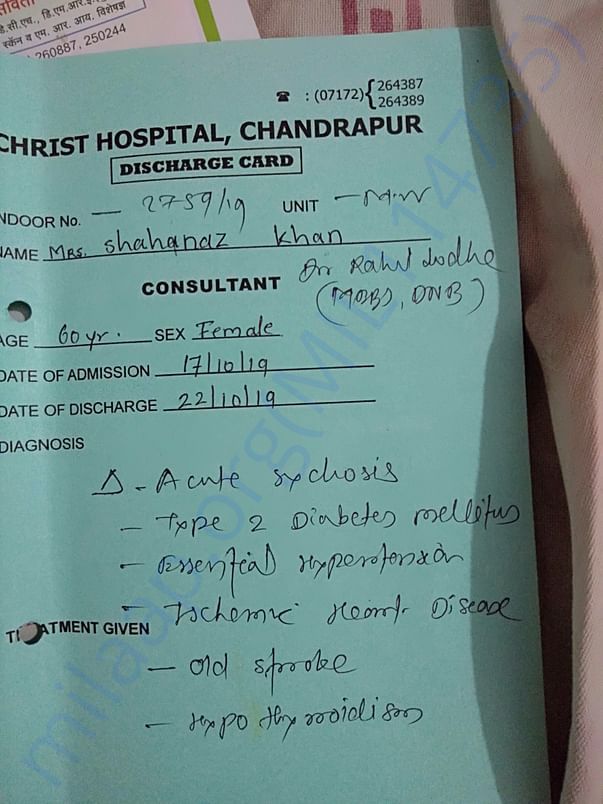 डी.सी.एच., डि.एम.आर.ई.
स्कॅन व एम. आर. आय. विशेषज्ञ
260887, 250244
☎ : (07172) { 264387
264389
CHRIST HOSPITAL, CHANDRAPUR
DISCHARGE CARD
NDOOR No. — 2759/19 UNIT –
NAME Mrs. Shahanaz Khan
CONSULTANT Dr Rahul Lodhe
(MBBS, DNB)
AGE 60 yr. SEX Female
DATE OF ADMISSION 17/10/19
DATE OF DISCHARGE 22/10/19
DIAGNOSIS
Δ - Acute sychosis
– Type 2 Diabetes mellitus
– Essential Hypertension
– Ischemic Heart Disease
TREATMENT GIVEN
– old stroke
– Hypothyroidism
milaap.org(MIL114735)